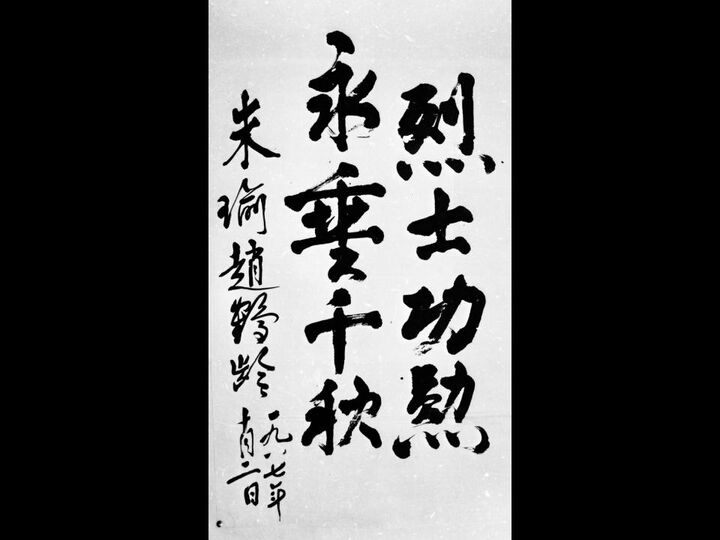 烈士功勲
永垂千秋
朱瑜趙鶴龄
一九八七年
十月二日